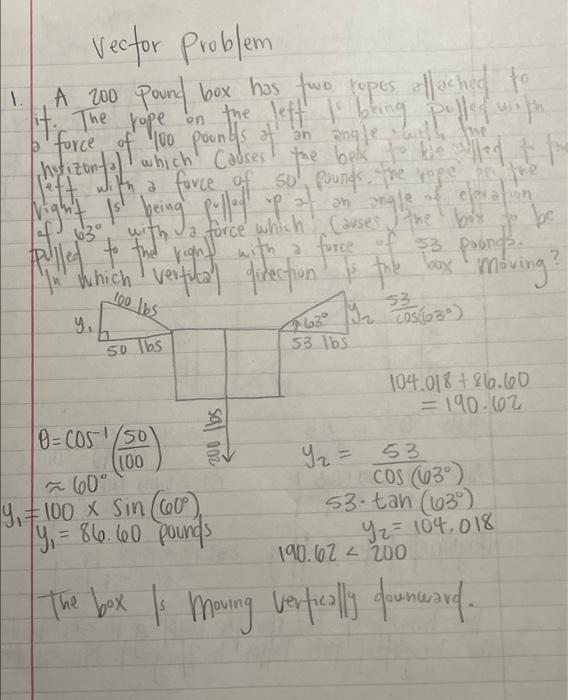 Vector Problem
1. A 200 Pound box has two ropes attached to
it. The rope on the left Is being pulled with
a force of 100 pounds at an angle with the
horizontal which Causes the box to be pulled to the
left with a force of 50 pounds. The rope on the
right Is being pulled up at an angle of elevation
of 63° with a force which Causes the box to be
pulled to the right with a force of 53 pounds.
In which vertical direction Is the box moving?
100 lbs
y₁
50 lbs
63°
y₂
53 lbs
53/cos(63°)
200 lbs
104.018 + 86.60
= 190.62
θ = cos⁻¹(50/100)
≈ 60°
y₁ = 100 x sin(60°)
y₁ = 86.60 pounds
y₂ = 53/cos(63°)
53 · tan(63°)
y₂ = 104.018
190.62 < 200
The box Is moving vertically downward.